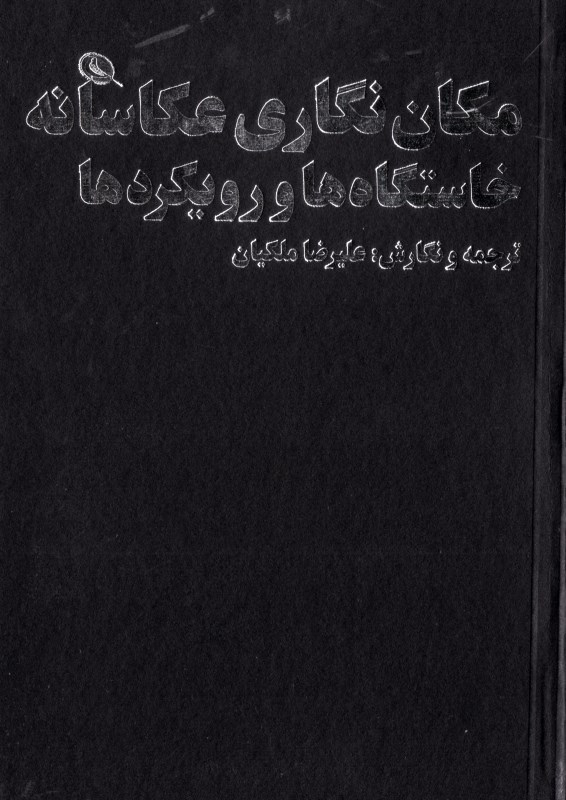 مکان نگاری عکاسانه
خاستگاه‌ها و رویکردها
ترجمه و نگارش: علیرضا ملکیان